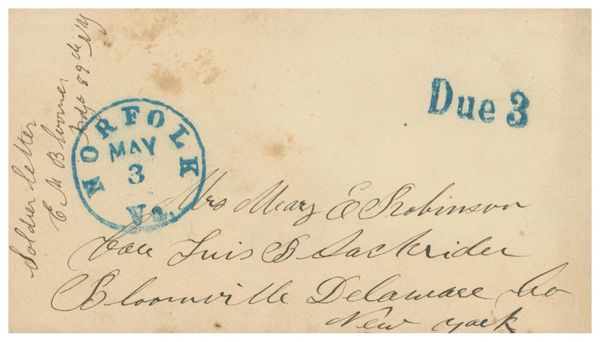 Soldier letter
E M Bloomer
89th NY
NORFOLK
MAY
3
Va.
Due 3
Mrs Mary E Robinson
Care Luis B Sackrider
Bloomville Delaware Co
New York